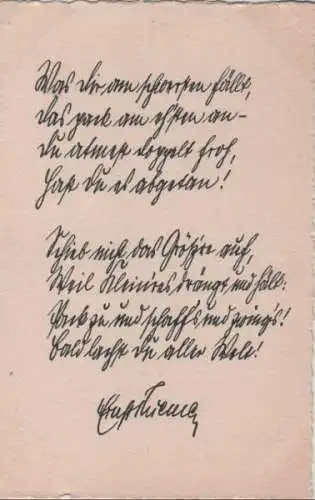 Was dir am schwersten fällt,
das pack am ehsten an –
du atmest doppelt froh,
hast du es abgetan!
Schieb nicht das Größre auf,
Weil Kleinres drängt und hält:
Pack zu und schaff's und zwing's!
Bald lachst du aller Welt!
Ernst Thieme